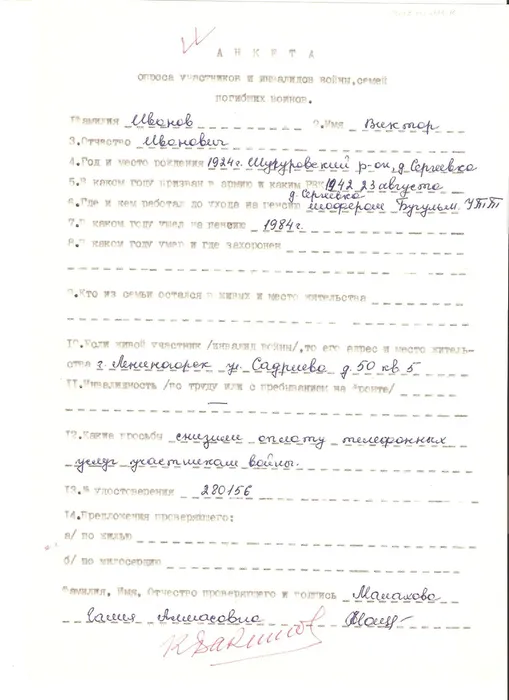 АНКЕТА
опроса участников и инвалидов войны, семей
погибших воинов.
1.Фамилия Иванов 2.Имя Виктор
3.Отчество Иванович
4.Год и место рождения 1924г. Шугуровский р-он, д. Сергеевка
5.В каком году призван в армию и каким РВК 1942 23 августа
д. Сергеевка
6.Где и кем работал до ухода на пенсию шофером Бугульм. УТТ
7.В каком году ушел на пенсию 1984г.
8.В каком году умер и где захоронен
9.Кто из семьи остался в живых и место жительства
10.Если живой участник /инвалид войны/, то его адрес и место житель-
ства г. Лениногорск ул. Садриева д. 50 кв 5
11.Инвалидность /по труду или с пребыванием на фронте/
—
12.Какие просьбы снизили оплату телефонных
услуг участникам войны.
13.№ удостоверения 280156
14.Предложения проверяющего:
а/ по жилью
б/ по милосердию
Фамилия, Имя, Отчество проверяющего и подпись Малахова
Алмасовна